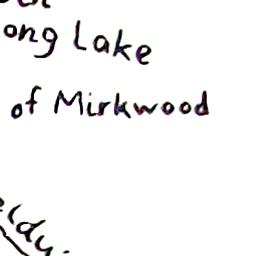 ong Lake
of Mirkwood